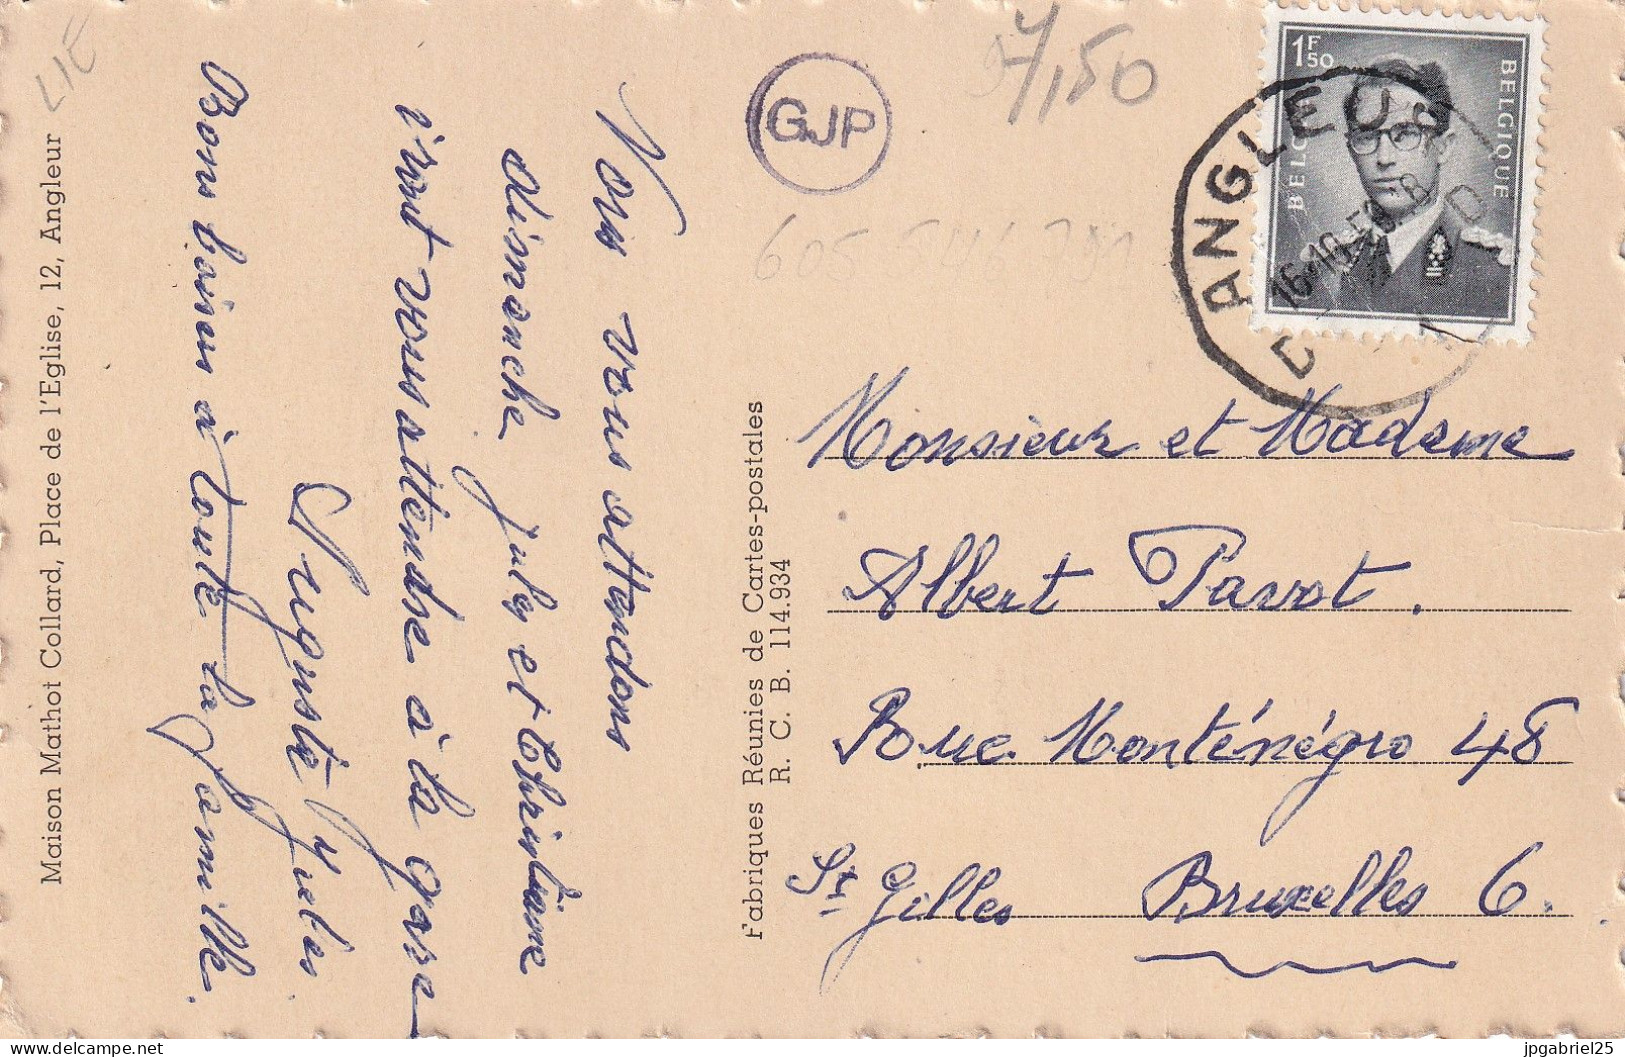 LIE
GJP
4,50
1F50
BELGIQUE
BELG
ANGLEUR
16-10-53
D 1 D
Maison Mathot Collard, Place de l'Eglise, 12, Angleur
Nous vous attendons
dimanche
Jules et Christiane
iront vous attendre à la gare
Auguste Julia
Bons baisers à toute la famille.
Fabriques Réunies de Cartes-postales
R. C. B. 114.934
Monsieur et Madame
Albert Pavot.
Rue Monténégro 48
St Gilles Bruxelles 6.
delcampe.net
jpgabriel25